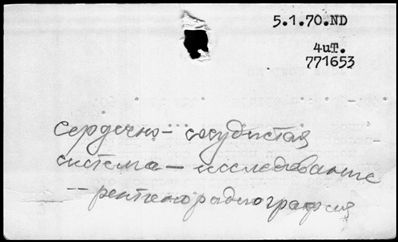 5.1.70.ND
4иТ.
771653
сердечно-сосудистая
система - исследование
-- рентгенорадиография